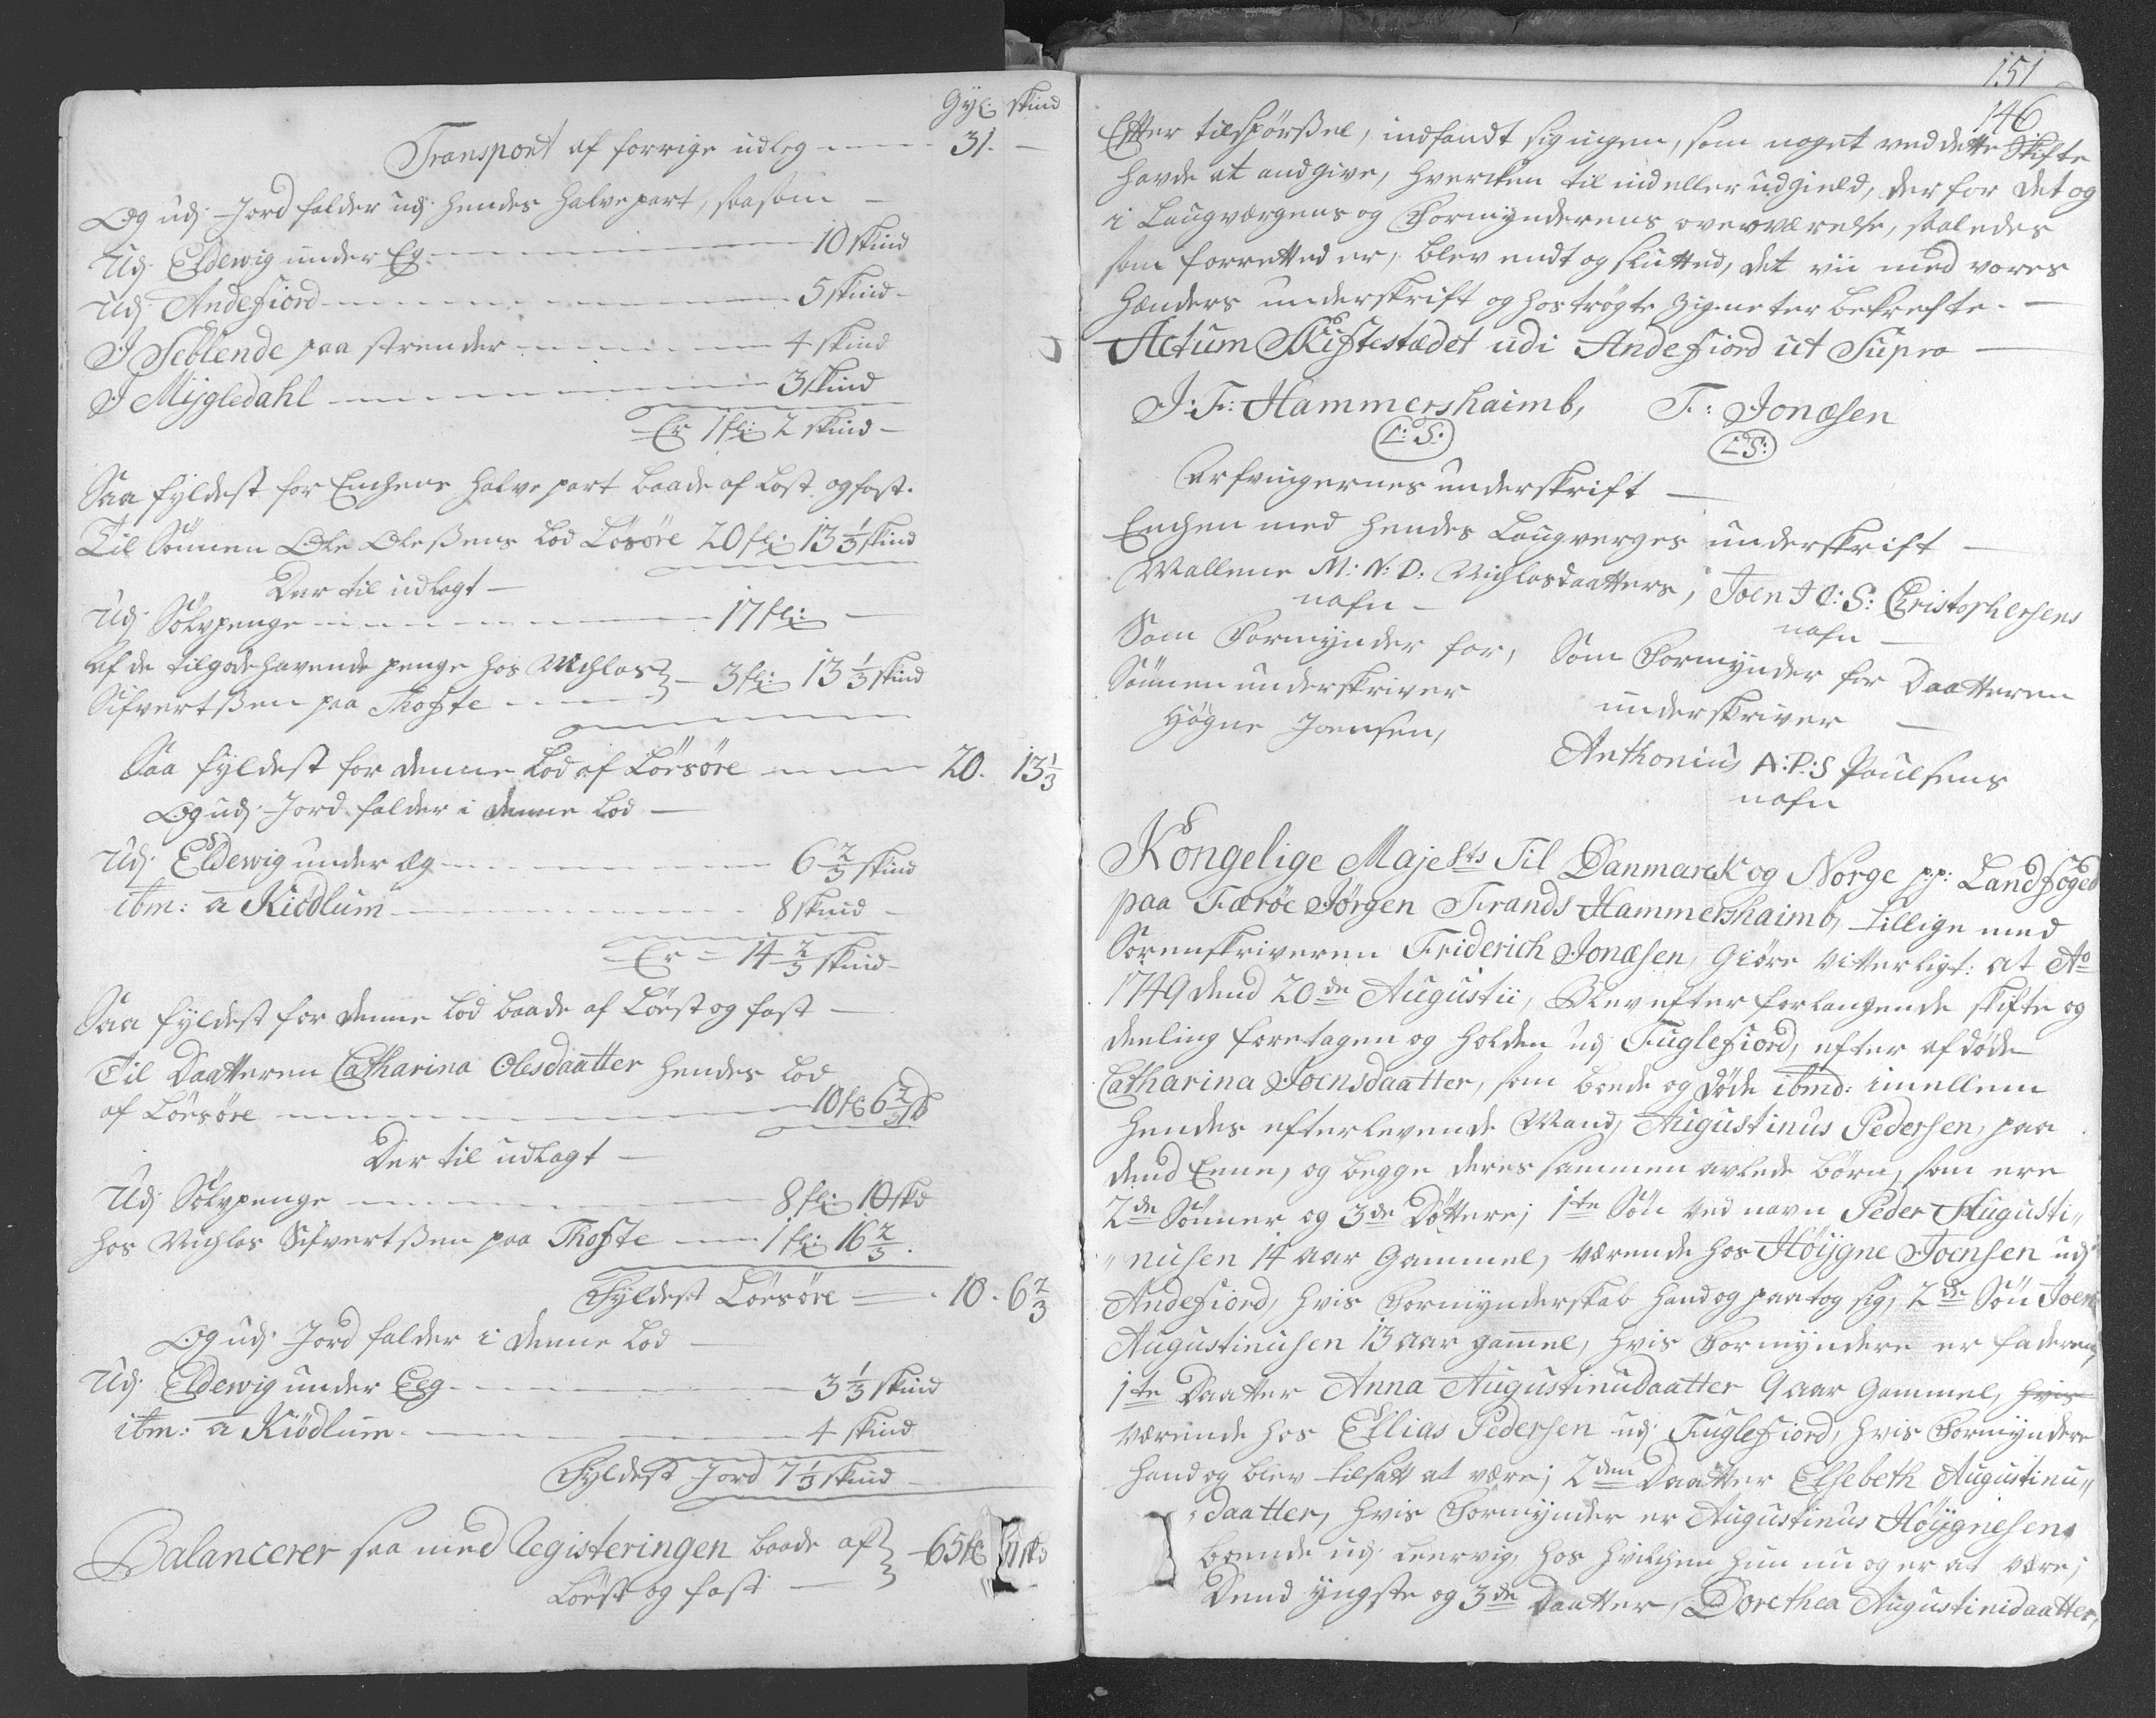 Gyl: Skind
Transport af forrige udleg ---- 31. -
Og udj Jord falder udj hendes halvepart, saasom -
Udj Eldewig under Eg. ---- 10 skind
Udj Andefiord ---- 5 skind -
I Seblende paa strender ---- 4 skind
I Mijgledahl ---- 3 skind
Er 1 fl: 2 skind -
Saa fyldest for Enchens halve part baade af Løst og fast.
Til Sönnen Ole Oleßens Lod Lösöre 20 fl: 13 1/3 skind
Der til udlagt -
Udj Sölvpenge ---- 17 fl: -
Af de tilgodehavende penge hos Nichlas } - 3 fl: 13 1/3 skind
Sifvertßen paa Thofte ----
Saa fyldest for denne Lod af Lörsöre ---- 20. 13 1/3
Og udj Jord falder i denne Lod -
Udj Eldewig under Eg ---- 6 2/3 skind
ibm: a Kiödlum ---- 8 skind -
Er = 14 2/3 skind -
Saa fyldest for denne Lod baade af Lörst og fast -
Til Daatteren Catharina Olesdaatter hendes Lod
af Lörsöre ---- 10 fl 6 2/3 sk
Der til udlagt -
Udj Sölvpenge ---- 8 fl: 10 skd
hos Nichlas Sifvertßen paa Thofte ---- 1 fl: 16 2/3.
Fyldest Lörsöre ---- 10. 6 2/3
Og udj Jord falder i denne Lod -
Udj Eldewig under Eeg ---- 3 1/3 skind
ibm: a Kiödlum ---- 4 skind
Fyldest Jord 7 1/3 skind -
Balancerer saa med Registeringen baade af } - 65 fl
Lörst og fast -
151
146
Efter tilspörßel, indfandt sig ingen, som noget ved dette Skifte
hafde at andgive, hvercken til ind eller udgield, der for det og
i Laugværgens og Formynderens overværelse, saaledes
som forretted er, blev endt og slutted, det vii med vores
hænders underskrift og hoströgte Zigneter bekrefte. -
Actum Skiftestædet udi Andefiord ut Supra -
J: F: Hammershaimb, F: Jonæsen
L: S: L: S:
Arfvingernes underskrift -
Enchen med hendes Laugverges underskrift -
Mallene M: N: D: Nichlasdaatters, Joen J C: S: Christophersens
nafn - nafn -
Som Formynder for, Som Formynder for Daatteren
Sönnen underskriver underskriver -
Högne Joensen, Anthonius A: P: S Poulsens
nafn
Kongelige Majests Til Danmarck og Norge p:p: Landfoged
paa Færöe Jörgen Frands Hammershaimb, tillige med
Sorenskriveren Friderich Jonæsen, Giöre Vitterligt: at Ao
1749 dend 20de Augustii, Blev efter forlangende skifte og
deeling foretagen og holden udj Fuglefiord, efter afdöde
Catharina Joensdaatter, som boede og döde ibmd: imellem
hendes efterlevende Mand, Augustinus Pedersen, paa
dend Eene, og begge deres sammen avlede börn, som ere
2de Sönner og 3de Döttere; 1te Sön ved navn Peder Augusti„
„nusen 14 aar gammel, værende hos Höijgne Joensen udj
Andefiord, hvis Formynderskab hand og paatog sig, 2de Sön Joen
Augustinusen 13 aar gam̄el, hvis Formyndere er faderen,
1te Daatter Anna Augustinudaatter 9 aar gammel, hvis
værende hos Ellias Pedersen udj Fuglefiord, hvis Formyndere
hand og blev tilsatt at være; 2den Daatter Elsebeth Augustinu„
„daatter, hvis Formynder er Augustinus Höijgnesen,
boende udj Leervig, hos hvilchen hun nu og er at være;
Dend yngste og 3de Daatter, Dorethea Augustinidaatter,